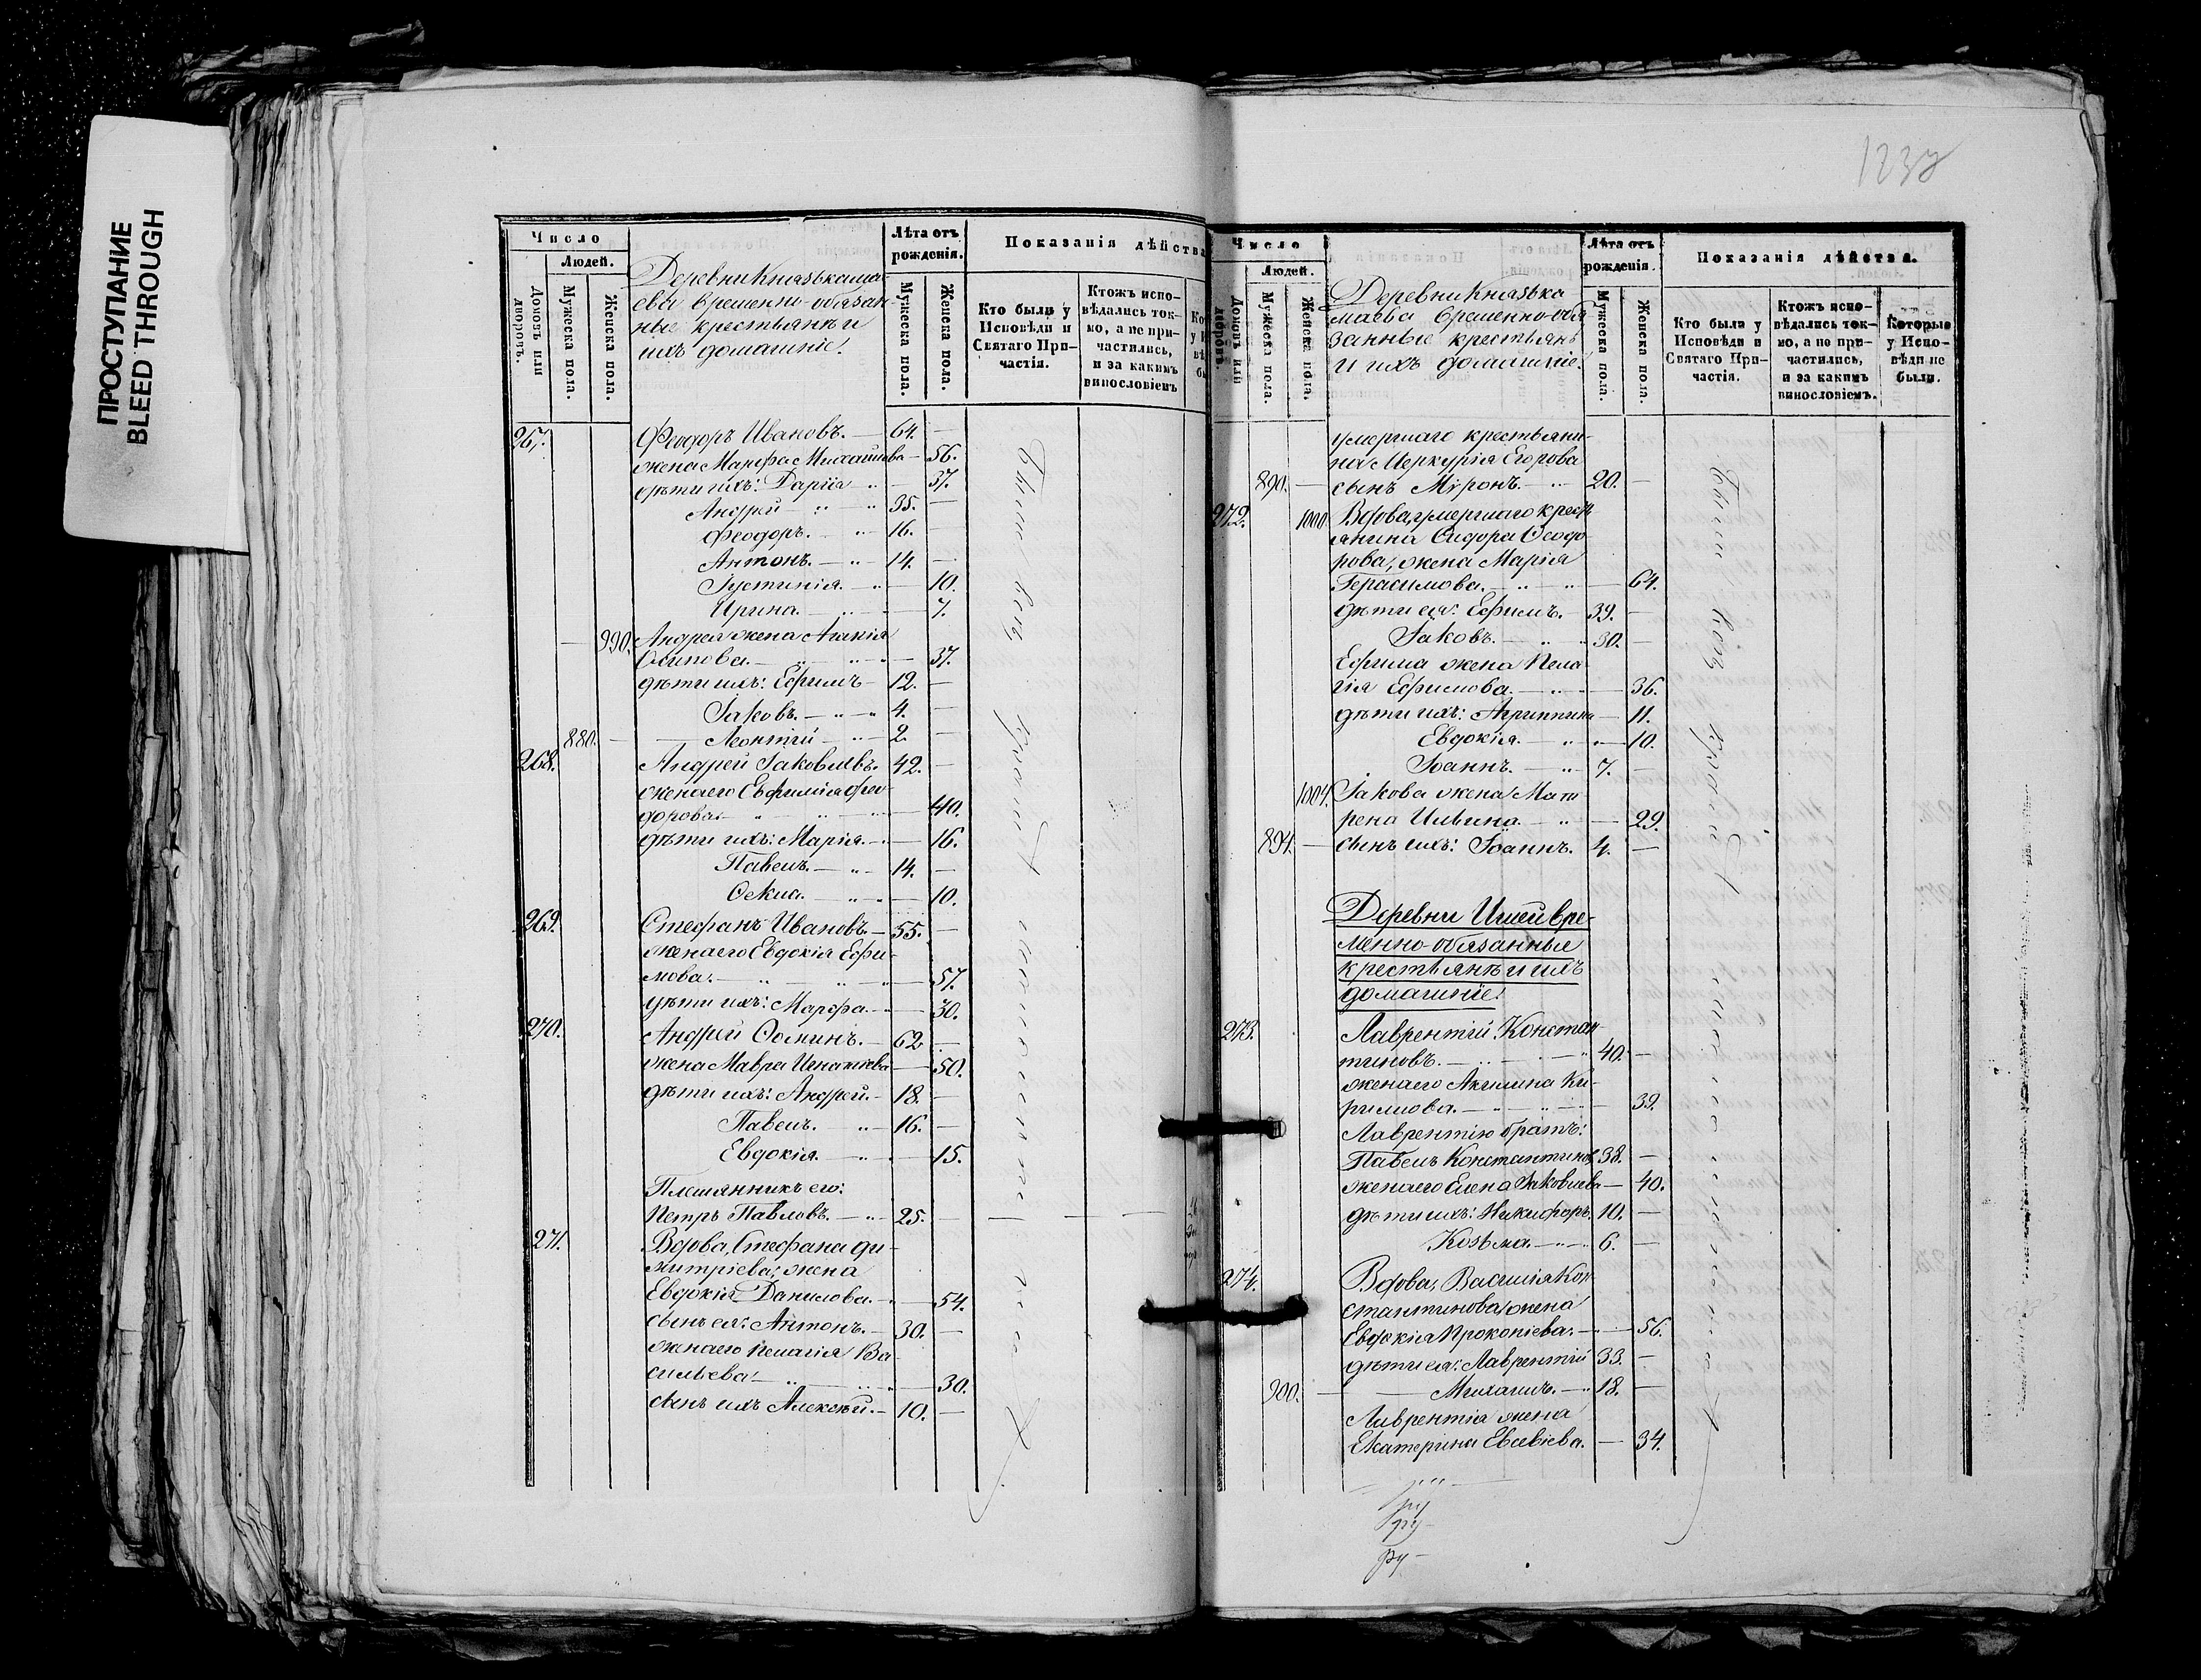 ПРОСТУПАНИЕ
BLEED THROUGH
Число
Людей.
Домовъ или дворовъ.
Мужеска пола.
Женска пола.
Деревни Князькама-
евы временно-обязан-
ные крестьянѣ и
ихъ домашніе.
Лѣта отъ
рожденія.
Мужеска пола.
Женска пола.
Показанія дѣйства
Кто были у
Исповѣди и
Святаго При-
частія.
Ктожъ испо-
вѣдались ток-
мо, а не при-
частились,
и за какимъ
винословіемъ
267. Феодоръ Ивановъ. — 64. —
жена Марфа Михайлова — 56.
дѣти ихъ: Дарія „ — 37.
Андрей — „ „ 35. —
Феодоръ. — „ — 16. —
Антонъ. — „ — 14. —
Іустинія. — „ — 10.
Ирина. — „ — 7.
— 990. Андрея жена Агапія
Осипова. — „ „ — 37.
дѣти ихъ: Ефимъ — 12. —
Іаковъ. — „ — „ 4. —
880. — Леонтій — „ — 2. —
268. Андрей Іаковлевъ. 42. —
жена его Евфимія Фео-
дорова. — „ „ — 40.
дѣти ихъ: Марія. — „ — 16.
Павелъ. — „ — 14. —
Фекла. — „ — 10.
269. Стефанъ Ивановъ. — 55. —
жена его Евдокія Ефи-
мова. — „ „ „ — 57.
дѣти ихъ: Марфа. — 30.
270. Андрей Фоминъ. — 62 —
жена Мавра Игнатіева — 50.
дѣти ихъ: Андрей. — 18. —
Павелъ. — „ — 16. —
Евдокія. — „ — 15.
Племянникъ его:
Петръ Павловъ. — „ — 25. —
271. Вдова, Стефана Ди-
митріева, жена
Евдокія Данилова. — „ — 54.
сынъ ея: Антонъ. — 30. —
жена его Пелагія Ва-
сильева — „ „ — 30.
сынъ ихъ Алексѣй. — 10. —
Были всѣ
1237
Число
Людей.
Домовъ или дворовъ.
Мужеска пола.
Женска пола.
Деревни Князька
маева временно-обя
занные крестьянѣ
и ихъ домашніе.
Лѣта отъ
рожденія.
Мужеска пола.
Женска пола.
Показанія дѣйства.
Кто были у
Исповѣди и
Святаго При-
частія.
Ктожъ испо-
вѣдались ток-
мо, а не при-
частились,
и за какимъ
винословіемъ.
Которые
у Испо-
вѣди не
были.
умершаго крестьяни-
на Меркурія Егорова
890. — сынъ Мѵронъ. — „ 20. —
272. 1000 Вдова, умершаго крест
янина Сидора Феодо
рова, жена Марія
Герасимова. — „ „ — 64.
дѣти ея: Ефимъ. — 39. —
Іаковъ. — „ „ 30. —
Ефима жена Пела
гія Ефимова. — „ — 36.
дѣти ихъ: Агриппина — 11.
Евдокія. — „ — 10.
Іоаннъ. — „ — 7. —
1004. Іакова жена Мат
рена Ильина. — „ — 29.
894. — сынъ ихъ: Іоаннъ. 4. —
Деревни Ишей вре-
менно-обязанные
крестьянѣ и ихъ
домашніе.
273. Лаврентій Констан
тиновъ. — „ — „ 40. —
жена его Акилина Ки-
рилова. — „ — „ — 39.
Лаврентію братъ:
Павелъ Константиновъ 38. —
жена его Елена Іаковлева — 40.
дѣти ихъ: Никифоръ. 10. —
Козьма. — „ — 6. —
274. Вдова, Василія Кон
стантинова жена
Евдокія Прокопіева. — 56.
дѣти ея: Лаврентій 33. —
900. — Михаилъ. — 18. —
Лаврентія жена
Екатерина Евсевіева. — 34.
Были всѣ